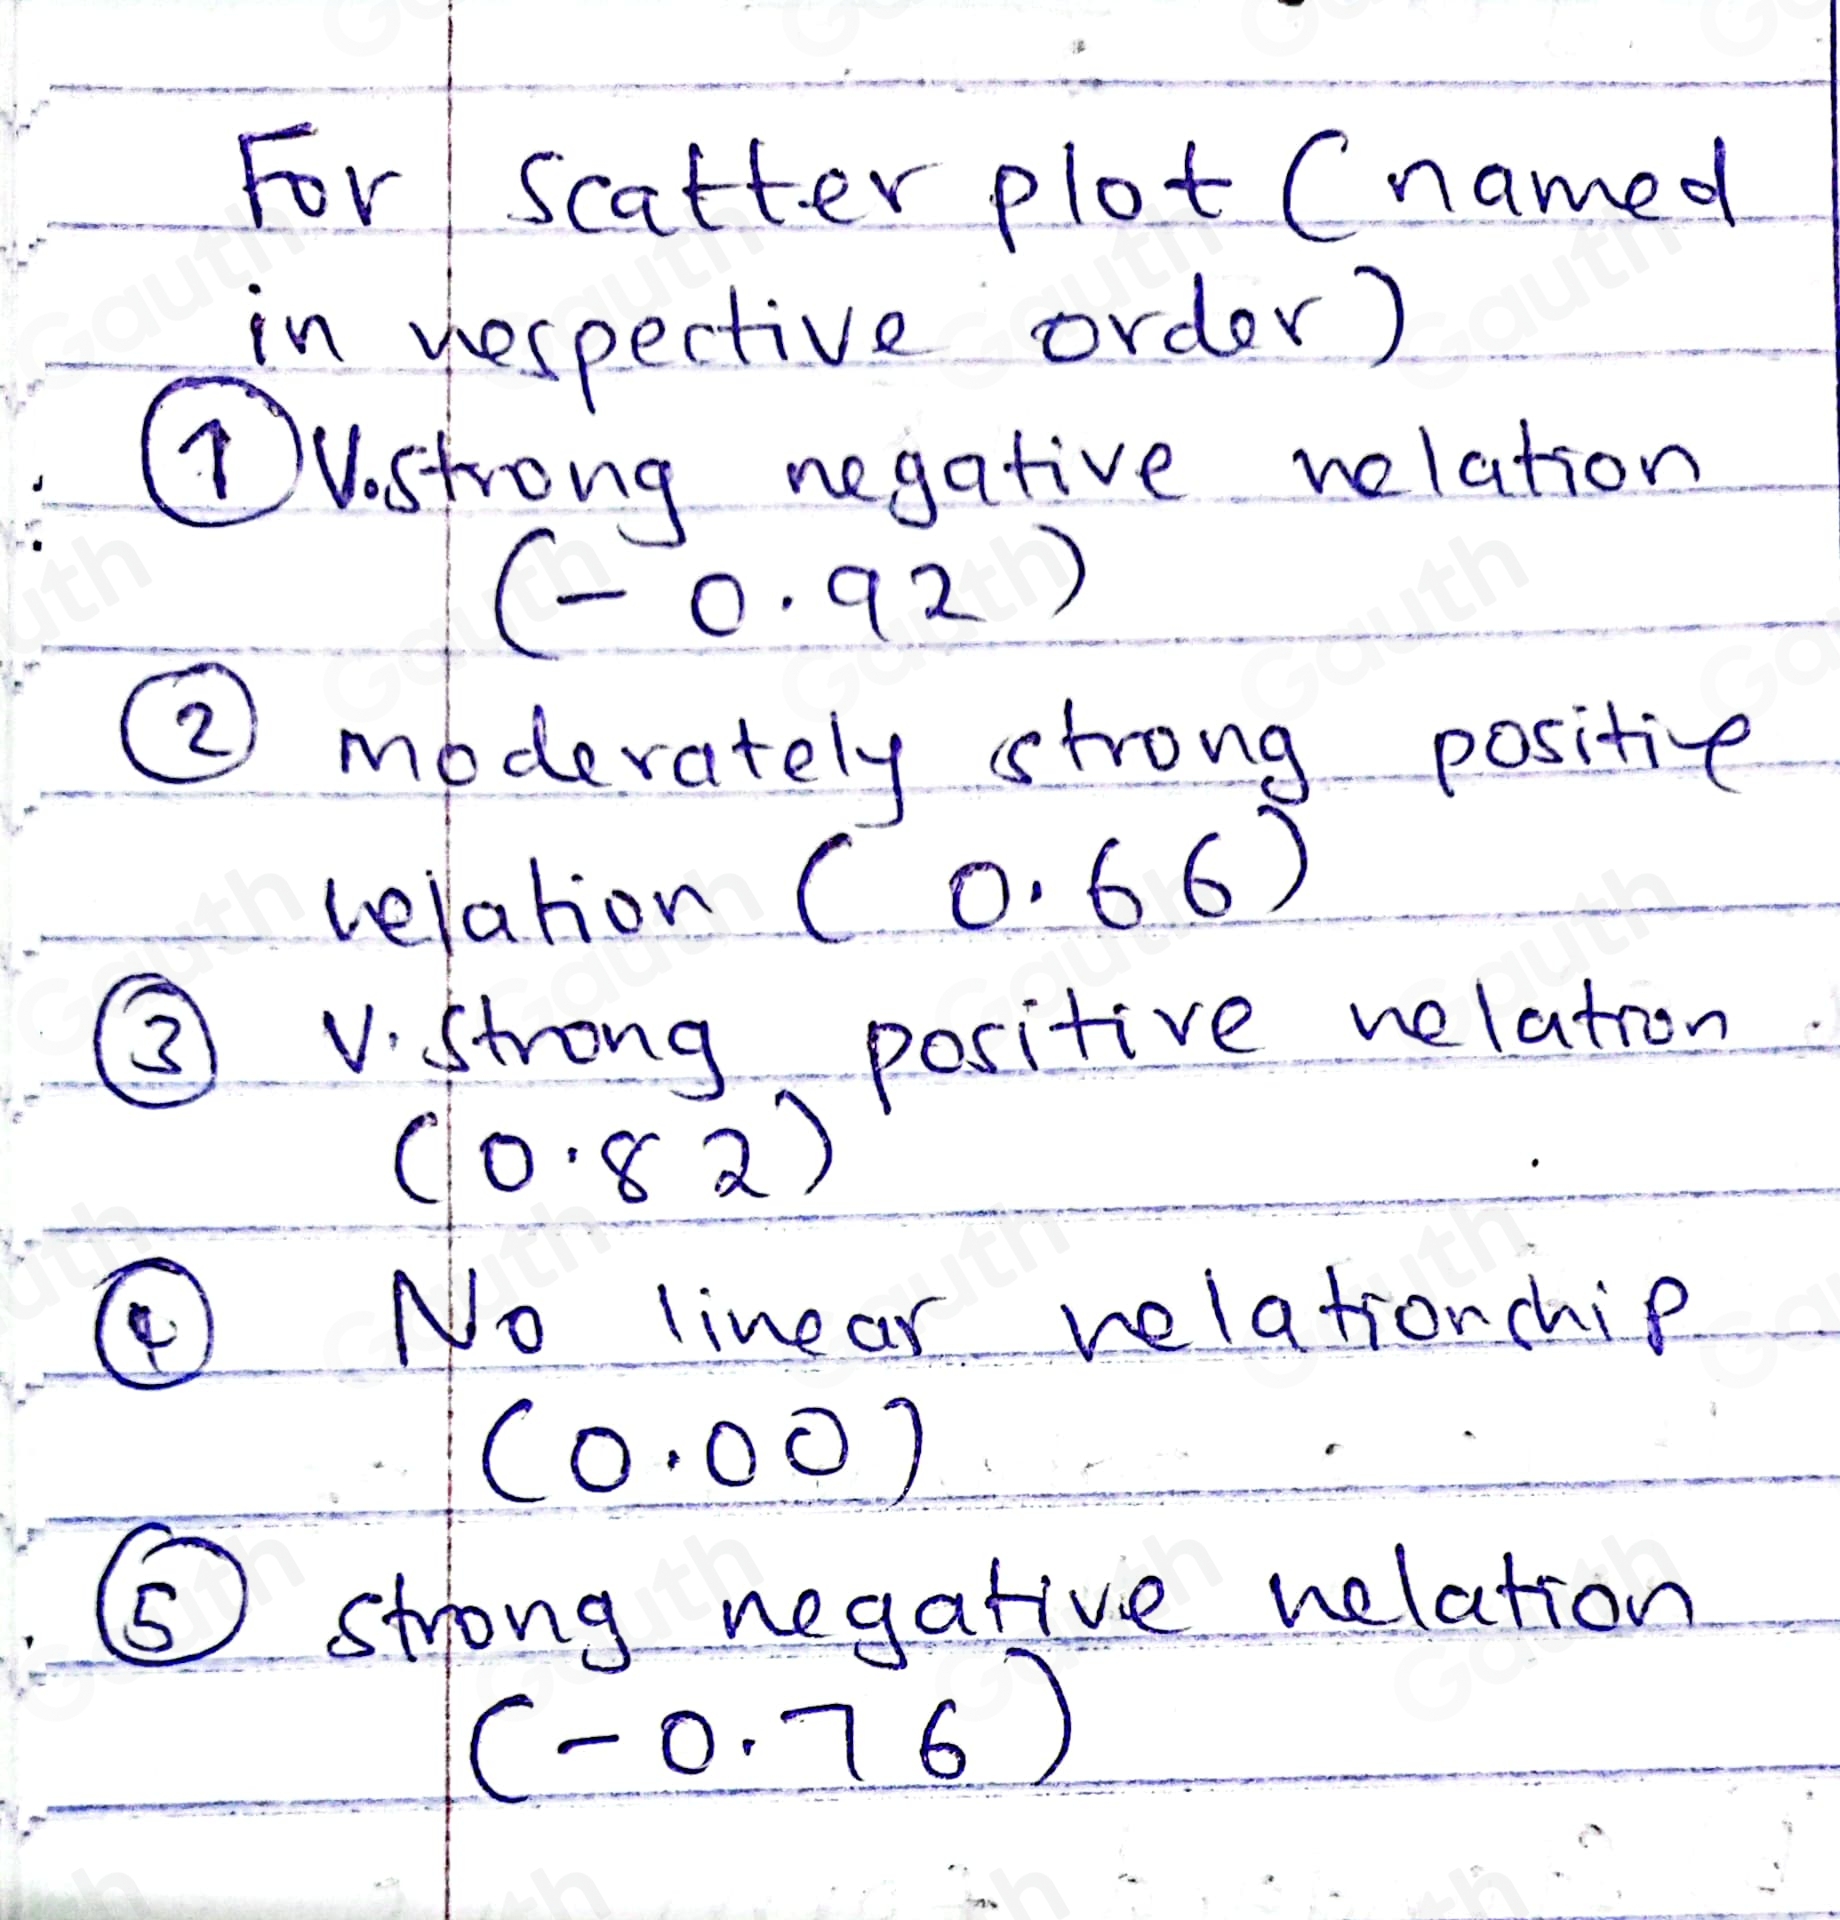 For scatter plot ( named
in respective order )
① V. strong negative relation
( - 0.92 )
② moderately strong positive
relation ( 0.66 )
③ V. strong positive relation
( 0.82 )
④ No linear relationship
( 0.00 )
⑤ strong negative relation
( - 0.76 )